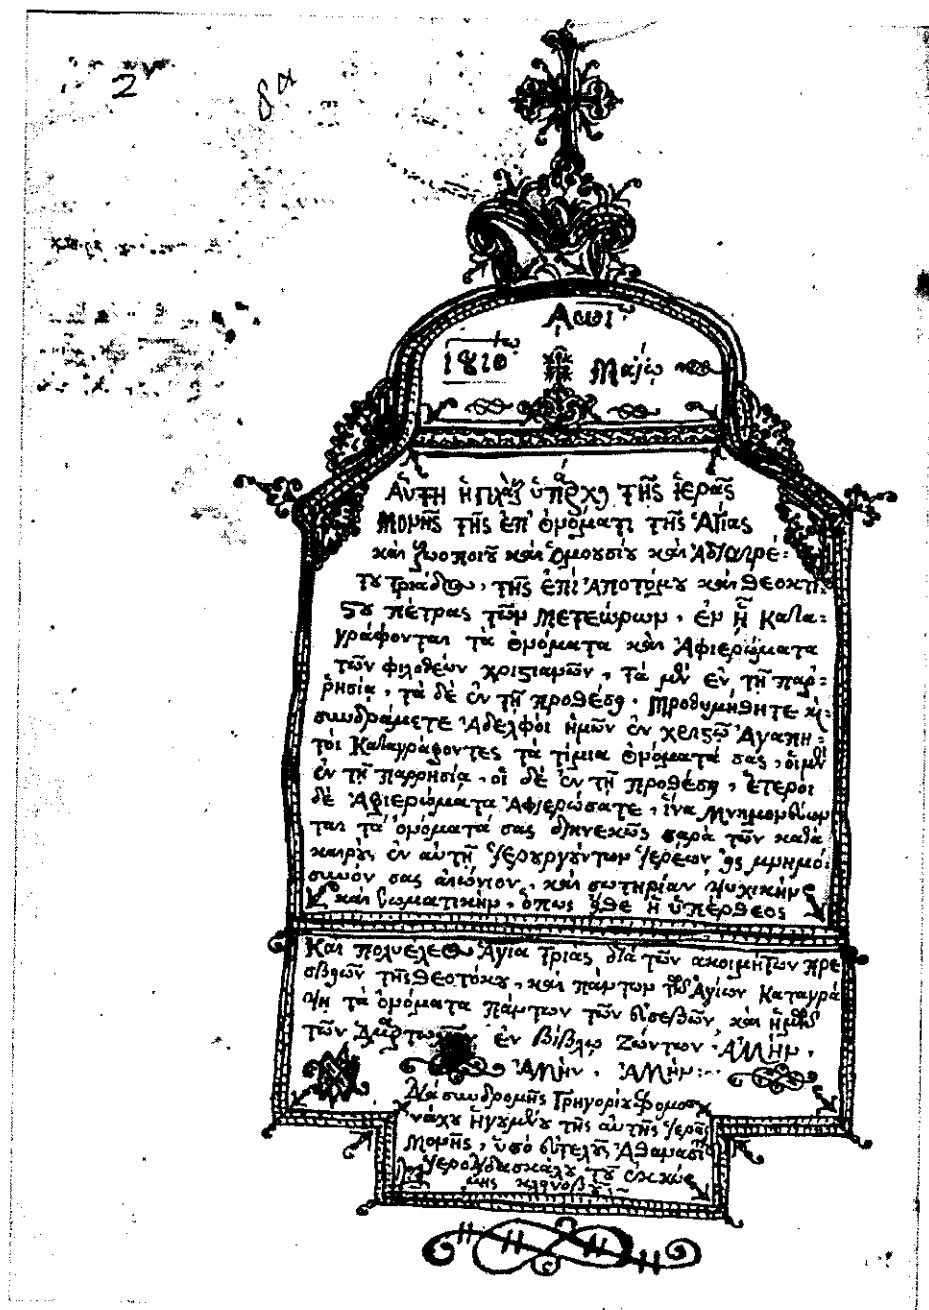 2
8α
Αωιῳ
1810ῳ Μαΐῳ
Αὕτη ἡ ὑπάρχῃ τῆς ἱερᾶς
Μονῆς τῆς ἐπ' ὀνόματι τῆς Ἁγίας
καὶ ζωοποιοῦ καὶ Ὁμουσίου καὶ Ἀδιαιρέ=
του Τριάδος, τῆς ἐπὶ Ἀποτόμου καὶ Θεοκτί=
στου πέτρας τῶν Μετεώρων, ἐν ᾗ Κατα=
γράφονται τὰ ὀνόματα καὶ Ἀφιερώματα
τῶν φιλοθέων χριστιανῶν, τὰ μὲν ἐν τῇ παρ=
ρησίᾳ, τὰ δὲ ἐν τῇ προθέσῃ. Προθυμήθητε κ
συνδράμετε Ἀδελφοὶ ἡμῶν ἐν χριστῷ Ἀγαπη=
τοὶ Καταγράφοντες τὰ τίμια ὀνόματά σας, οἱ μὲν
ἐν τῇ παρρησίᾳ, οἱ δὲ ἐν τῇ προθέσῃ, ἕτεροι
δὲ Ἀφιερώματα Ἀφιερώσατε, ἵνα Μνημονεύων
ται τὰ ὀνόματά σας διηνεκῶς παρὰ τῶν κατὰ
καιροὺς ἐν αὐτῇ ἱερουργούντων ἱερέων, εἰς μνημό=
συνόν σας αἰώνιον, καὶ σωτηρίαν ψυχικὴν
καὶ σωματικήν, ὅπως ἡ ὑπέρθεος
Καὶ πολυέλεος Ἁγία Τριὰς διὰ τῶν ἀκοιμήτων πρε
σβειῶν τῆς Θεοτόκου, καὶ πάντων τῶν Ἁγίων Καταγρά
ψῃ τὰ ὀνόματα πάντων τῶν εὐσεβῶν, καὶ ἡμῶν
τῶν Ἁμαρτωλῶν ἐν βίβλῳ Ζώντων. ΑΜΗΝ.
ΑΜΗΝ. ΑΜΗΝ:
Διὰ συνδρομῆς Γρηγορίου Ἱερομο
νάχου Ἡγουμένου τῆς αὐτῆς ἱερᾶς
Μονῆς, ὑπὸ εὐτελοῦς Ἀθανασίου
Ἱεροδιδασκάλου τοῦ ἐκ